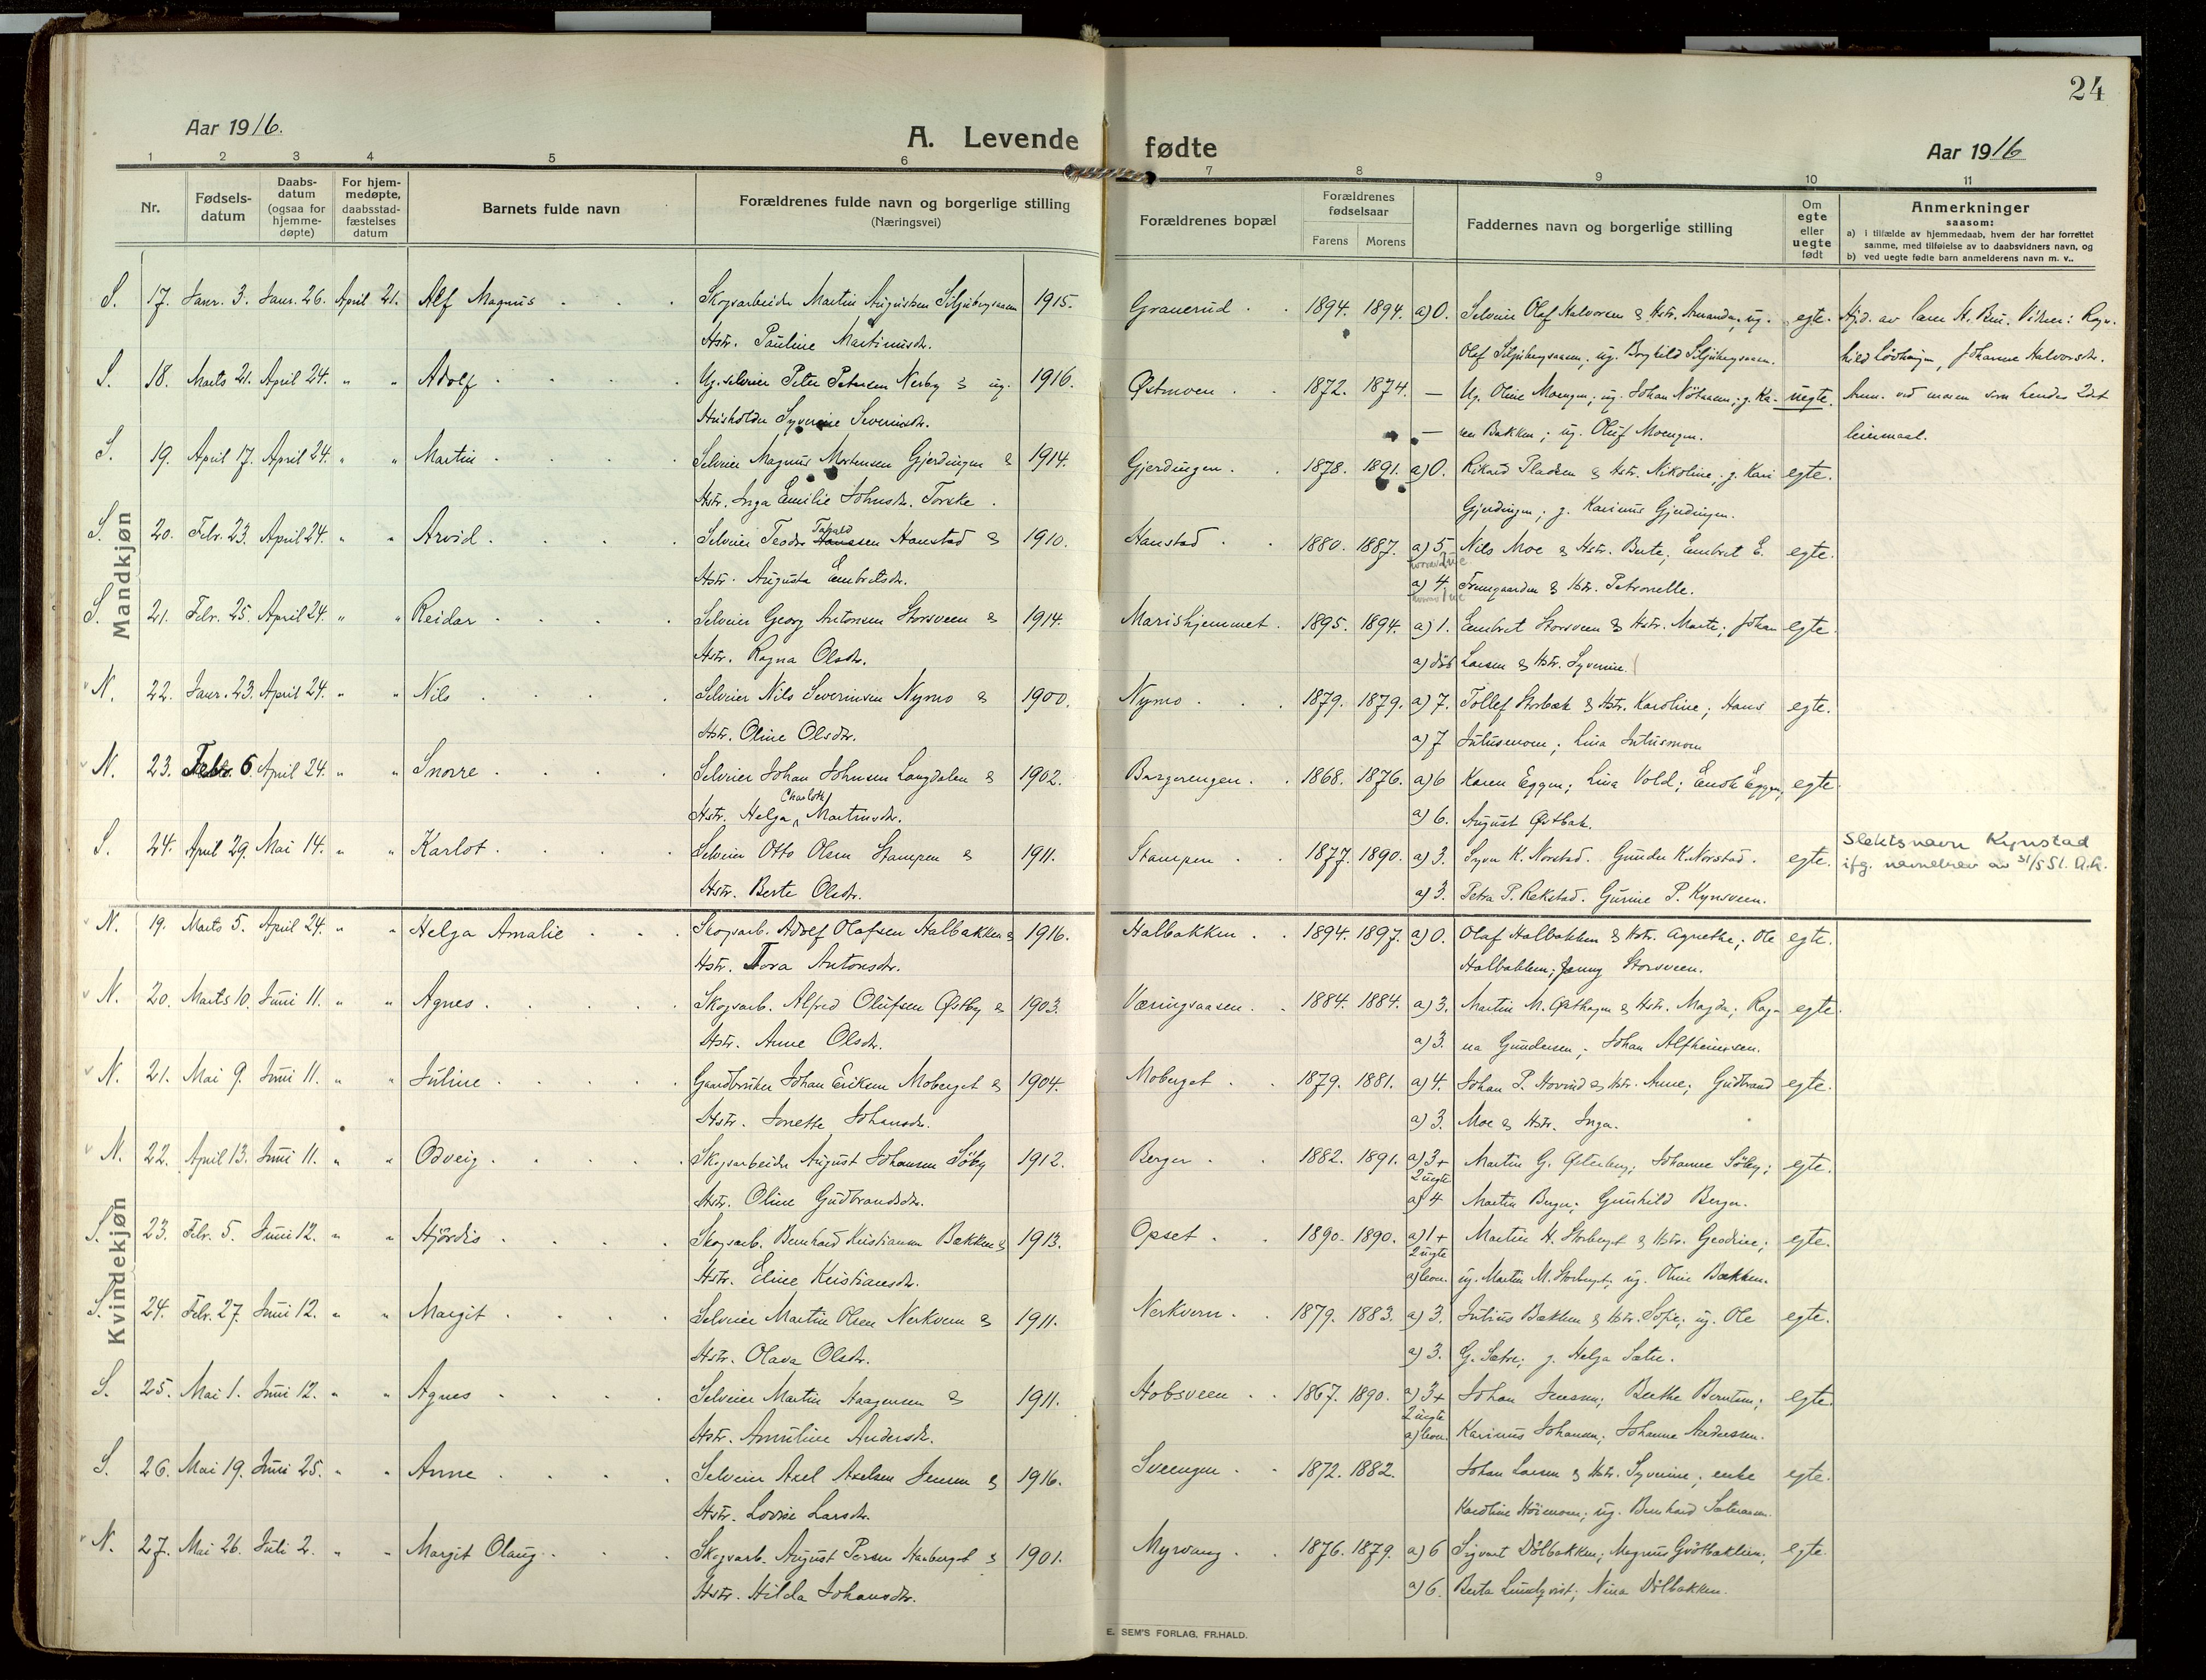 24
Aar 1916.
A. Levende fødte
Aar 1916
1 2 3 4 5 6 7 8 9 10 11
Nr.
Fødsels-datum
Daabs-datum (ogsaa for hjemme-døpte)
For hjem-medøpte, daabsstad-fæstelses datum
Barnets fulde navn
Forældrenes fulde navn og borgerlige stilling (Næringsvei)
Forældrenes bopæl
Forældrenes fødselsaar
Farens Morens
Faddernes navn og borgerlige stilling
Om egte eller uegte født
Anmerkninger
saasom:
a) i tilfælde av hjemmedaab, hvem der har forrettet samme, med tilføielse av to daabsvidners navn, og
b) ved uegte fødte barn anmelderens navn m. v..
Mandkjøn
S. 17. Janr. 3. Janr. 26. April 21. Alf Magnus Skogsarbeider Martin Augustsen Siljubergsaasen 1915. Grauerud 1894. 1894. a) 0. Selveier Olaf Halvorsen & Hstr. Amanda; ug. egte. Hj.d. av Lars H. Bru. Vidner: Ragn-
Hstr. Pauline Martinusdtr. Olaf Siljubergsaasen; ug. Borghild Siljubergsaasen. hild Løvhaugen, Johanne Halvorsdtr.
S. 18. Marts 21. April 24. " " Adolf Ug. selveier Peter Petersen Nerby & ug. 1916. Østmoen 1872. 1874. — Ug. Oline Moengen; ug. Johan ; g. Ka- uegte. Anm. ved moren som hendes 2det
Husholder Syverine Severinsdtr. — ren Bakken; ug. Oluf Moengen. leiermaal.
S. 19. April 17. April 24. " " Martin Selveier Magnus Mortensen Gjerdingen & 1914. Gjerdingen 1878. 1891. a) 0. Rikard Pladsen & Hstr. Nikoline; g. Kari egte.
Hstr. Inga Emilie Johnsdtr. Torske. Gjerdingen; g. Karinus Gjerdingen.
S. 20. Febr. 23. April 24. " " Arvid Selveier Teodor Hansen Hanstad & 1910. Hanstad 1880. 1887. a) 5 Nils Moe & Hstr. Berte; Embret E. egte.
Hstr. Augusta Embretsdtr. a) 4 Fremgaarden & Hstr. Petronelle.
S. 21. Febr. 25. April 24. " " Reidar Selveier Georg Antonsen Storsveen & 1914. Marishjemmet 1895. 1894. a) 1. Embret Storsveen & Hstr. Marte; Johan egte.
Hstr. Ragna Olsdtr. a) død Larsen & Hstr. Syverine.
N. 22. Janr. 23. April 24. " " Nils Selveier Nils Severinsen Nymo & 1900. Nymo 1879. 1879. a) 7. Tollef Storbæk & Hstr. Karoline; Hans egte.
Hstr. Oline Olsdtr. a) 7 Julusmoen; Lina Julusmoen
N. 23. Febr. 6. April 24. " " Snorre Selveier Johan Johnsen Langdalen & 1902. Borgerengen 1868. 1876. a) 6 Karen Eggen; Lina Vold; Enok Eggen; egte.
Charlotte
Hstr. Helga Martinsdtr. a) 6. August Østbak.
S. 24. April 29. Mai 14. " " Karlot Selveier Otto Olsen Stampen & 1911. Stampen 1877. 1890. a) 3. Syver K. Norstad. Gunder K. Norstad. egte. Slektsnavn Kynstad
Hstr. Berte Olsdtr. a) 3. Petra P. Rekstad. Gurine P. Kynsveen. ifg. navnebrev av 31/5 51. A.K.
Kvindekjøn
N. 19. Marts 5. April 24. " " Helga Amalie Skogsarb. Adolf Olafsen Halbakken & 1916. Halbakken 1894. 1897. a) 0. Olaf Halbakken & Hstr. Agnethe; Ole egte.
Hstr. Tora Antonsdtr. Halbakken; Jenny Storsveen.
N. 20. Marts 10. Juni 11. " " Agnes Skogsarb. Alfred Olufsen Østby & 1903. Væringsaasen 1884. 1884. a) 3. Martin M. Østhagen & Hstr. Magda; Rag- egte.
Hstr. Anne Olsdtr. a) 3. na Gundersen; Johan Alfheimsen.
N. 21. Mai 9. Juni 11. " " Juline Gaardbruker Johan Eriksen Moberget & 1904. Moberget 1879. 1881. a) 4. Johan P. Hovind & Hstr. Anne; Gudbrand egte.
Hstr. Jonette Johansdtr. a) 3. Moe & Hstr. Inga.
N. 22. April 13. Juni 11. " " Odveig Skogsarbeider August Johansen Søby 1912. Berger 1882. 1891. a) 3 + 2 uegte Martin G. Østerberg; Johanne Søby; egte.
Hstr. Oline Gudbrandsdtr. a) 4 Martin Berger; Gunhild Berger.
S. 23. Febr. 5. Juni 12. " " Hjördis Skogsarb. Bernhard Kristiansen Bækken & 1913. Opset 1890. 1890. a) 1 + 2 uegte Martin H. Storberget & Hstr. Geodine; egte.
Hstr. Eline Kristiansdtr. a) leve. ug. Martin M. Storberget; ug. Oline Bækken.
S. 24. Febr. 27. Juni 12. " " Margit Selveier Martin Olsen Nerkvern & 1911. Nerkvern 1879. 1883. a) 3. Julius Bækken & Hstr. Sofie; ug. Ole egte.
Hstr. Olava Olsdtr. a) 3. G. Sætre; g. Helga Sætre.
S. 25. Mai 1. Juni 12. " " Agnes Selveier Martin Haagensen & 1911. Hobsveen 1867. 1890. a) 3 + 2 uegte Johan Jensen; Berthe Berntsen; egte.
Hstr. Anuline Andersdtr. a) leve. Karinus Johansen; Johanne Andersen.
S. 26. Mai 19. Juni 25. " " Anne Selveier Axel Axelsen Jensen & 1916. Sveengen 1872. 1882. Johan Larsen & Hstr. Syverine; enke egte.
Hstr. Lovise Larsdtr. Karoline Höimoen; ug. Bernhard Sæteraasen.
N. 27. Mai 26. Juli 2. " " Margit Olaug Skogsarb. August Persen Harberget & 1901. Myrvang 1876. 1879. a) 6 Sigvart Dölbakken; Magnus Gvötbakken; egte.
Hstr. Hilda Johansdtr. a) 6. Berta Lundqvist; Nina Dölbakken.
E. SEM'S FORLAG, FR.HALD.